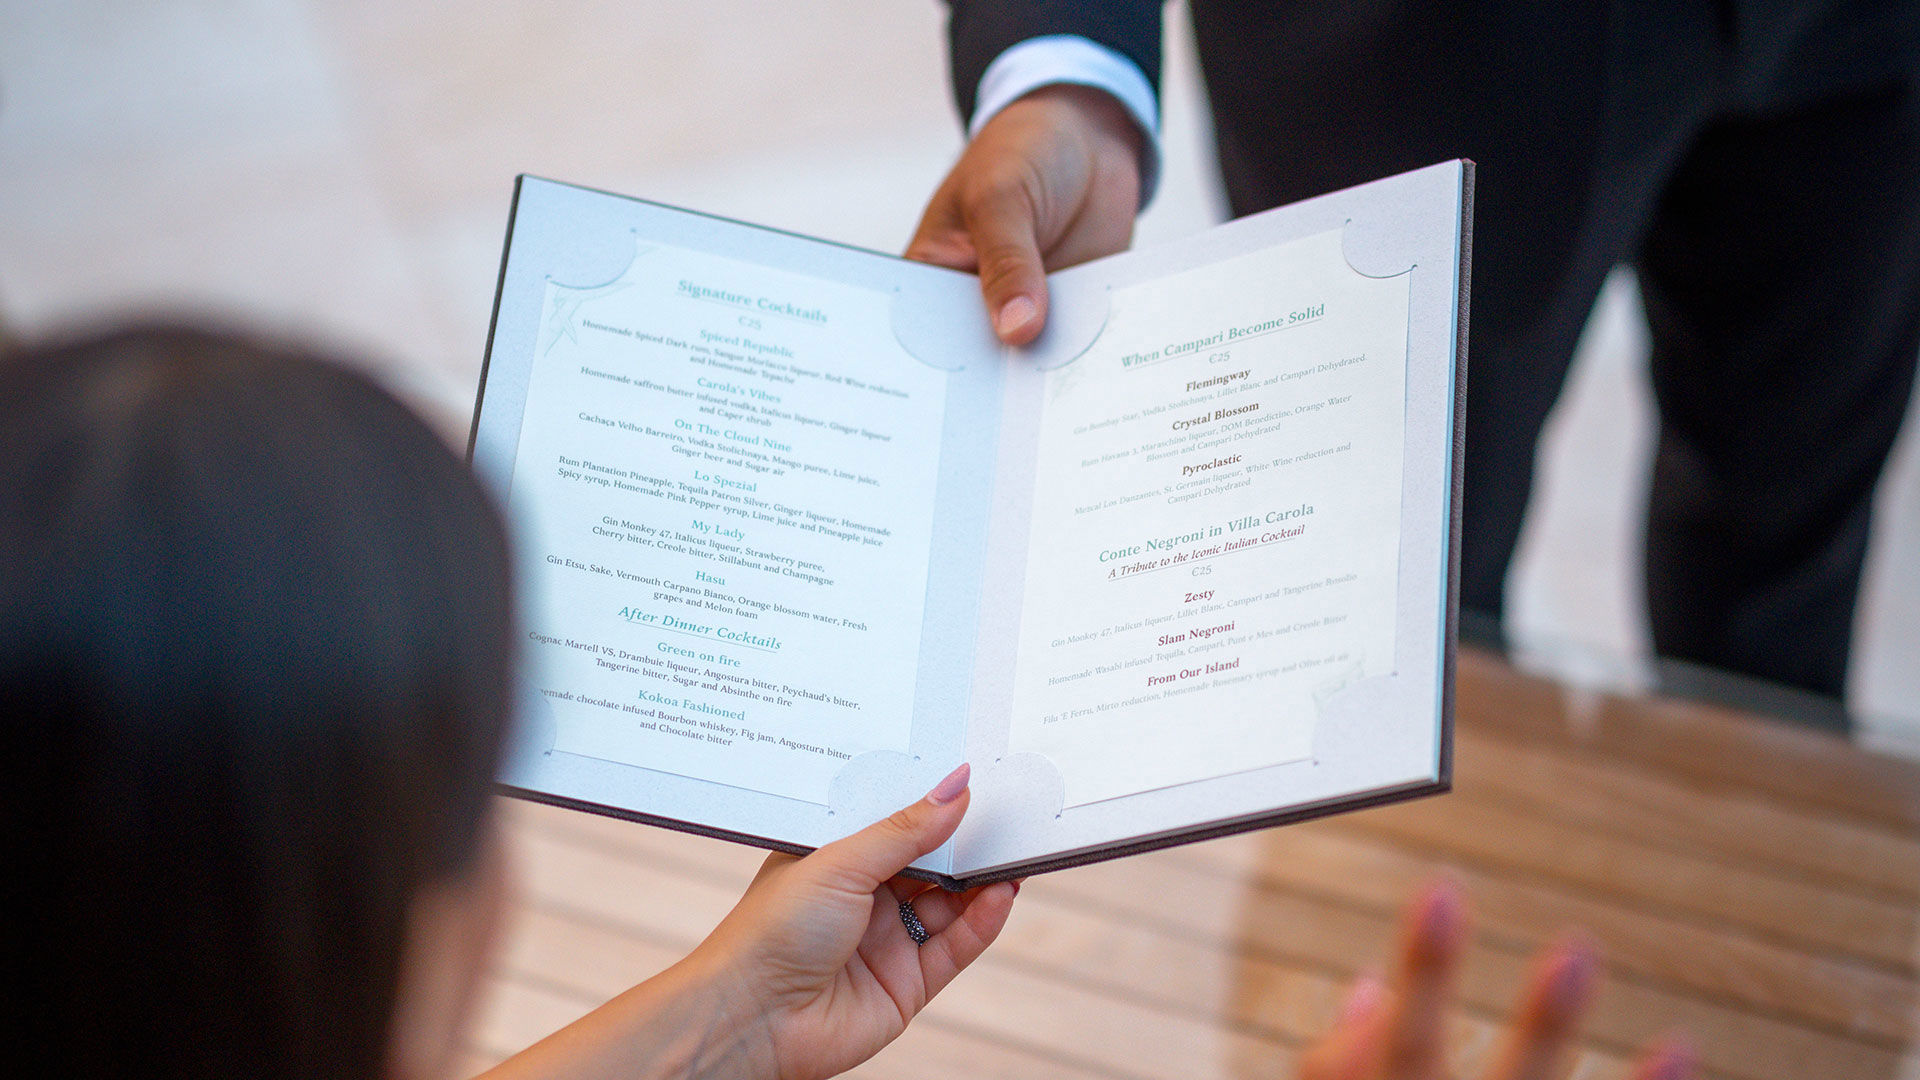 Signature Cocktails
€25
Spiced Republic
Homemade Spiced Dark rum, Sangue Morlacco liqueur, Red Wine reduction
and Homemade Tepache
Carola's Vibes
Homemade saffron butter infused vodka, Italicus liqueur, Ginger liqueur
and Caper shrub
On The Cloud Nine
Cachaça Velho Barreiro, Vodka Stolichnaya, Mango puree, Lime juice,
Ginger beer and Sugar air
Lo Spezial
Rum Plantation Pineapple, Tequila Patron Silver, Ginger liqueur, Homemade
Spicy syrup, Homemade Pink Pepper syrup, Lime juice and Pineapple juice
My Lady
Gin Monkey 47, Italicus liqueur, Strawberry puree,
Cherry bitter, Creole bitter, Stillabunt and Champagne
Hasu
Gin Etsu, Sake, Vermouth Carpano Bianco, Orange blossom water, Fresh
grapes and Melon foam
After Dinner Cocktails
Green on fire
Cognac Martell VS, Drambuie liqueur, Angostura bitter, Peychaud's bitter,
Tangerine bitter, Sugar and Absinthe on fire
Kokoa Fashioned
emade chocolate infused Bourbon whiskey, Fig jam, Angostura bitter
and Chocolate bitter
When Campari Become Solid
€25
Flemingway
Gin Bombay Star, Vodka Stolichnaya, Lillet Blanc and Campari Dehydrated.
Crystal Blossom
Rum Havana 3, Maraschino liqueur, DOM Benedictine, Orange Water
Blossom and Campari Dehydrated
Pyroclastic
Mezcal Los Danzantes, St. Germain liqueur, White Wine reduction and
Campari Dehydrated
Conte Negroni in Villa Carola
A Tribute to the Iconic Italian Cocktail
€25
Zesty
Gin Monkey 47, Italicus liqueur, Lillet Blanc, Campari and Tangerine Rosolio
Slam Negroni
Homemade Wasabi infused Tequila, Campari, Punt e Mes and Creole Bitter
From Our Island
Filu 'E Ferru, Mirto reduction, Homemade Rosemary syrup and Olive oil air